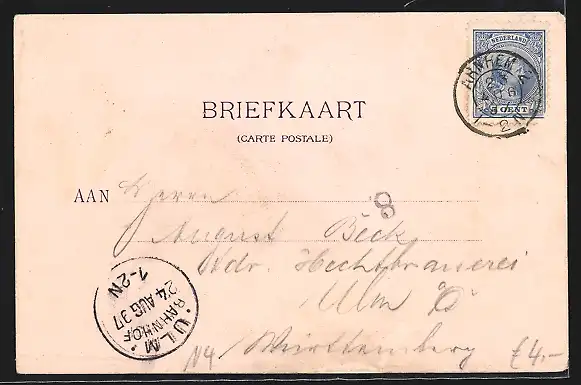 NEDERLAND
5 CENT
ARNHEM
BRIEFKAART
(CARTE POSTALE)
AAN Herrn
8
August Beck
Adr. Hechtbrauerei
Ulm a/D
Württemberg
N4
£4.-
ULM
BAHNHOF
24 AUG 97
1-2N